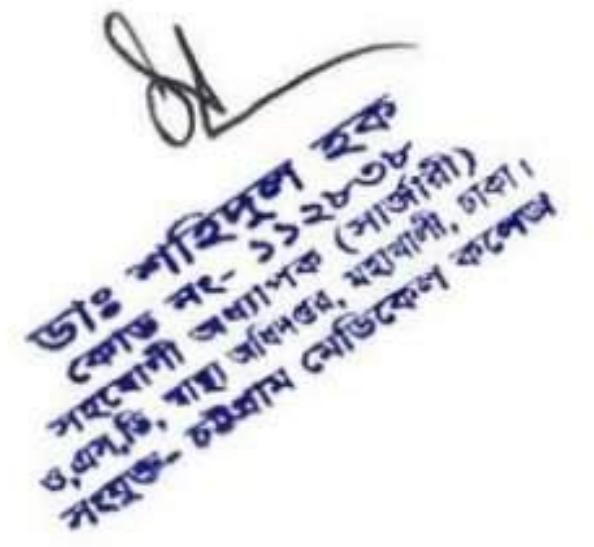 ডাঃ শাহিদুল হক
কোড নং- ১১২৮৩৮
সহযোগী অধ্যাপক (সার্জারী)
ও,এস,ডি, স্বাস্থ্য অধিদপ্তর, মহাখালী, ঢাকা।
সংযুক্ত- চট্টগ্রাম মেডিকেল কলেজ